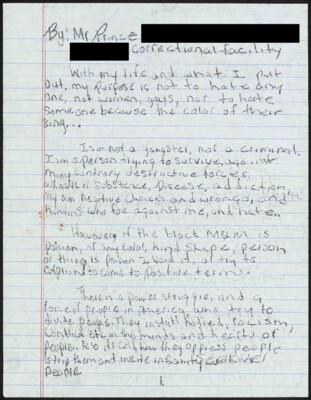 By: Mr Prince
correctional facility
With my life and what I put
out, my purpose is not to hate any
one, not women, gays, nor to hate
someone because the color of their
I am not a gangster, nor a criminal.
I am a person trying to survive, against
many contrary destructive forces,
Substance, Disease, addiction,
my own Negative choices and wrongs, and
humans who are against me, and hate.
However if the black M&M is
poison, or any color, kind shape, person
or thing is poison I void it, or try to
to come to positive terms.
There is a power struggle, and a
force of people in america who try to
divide people. They install hatred, racism,
in the minds and hearts of
people. they oppress people
strip them and insanity
people
1